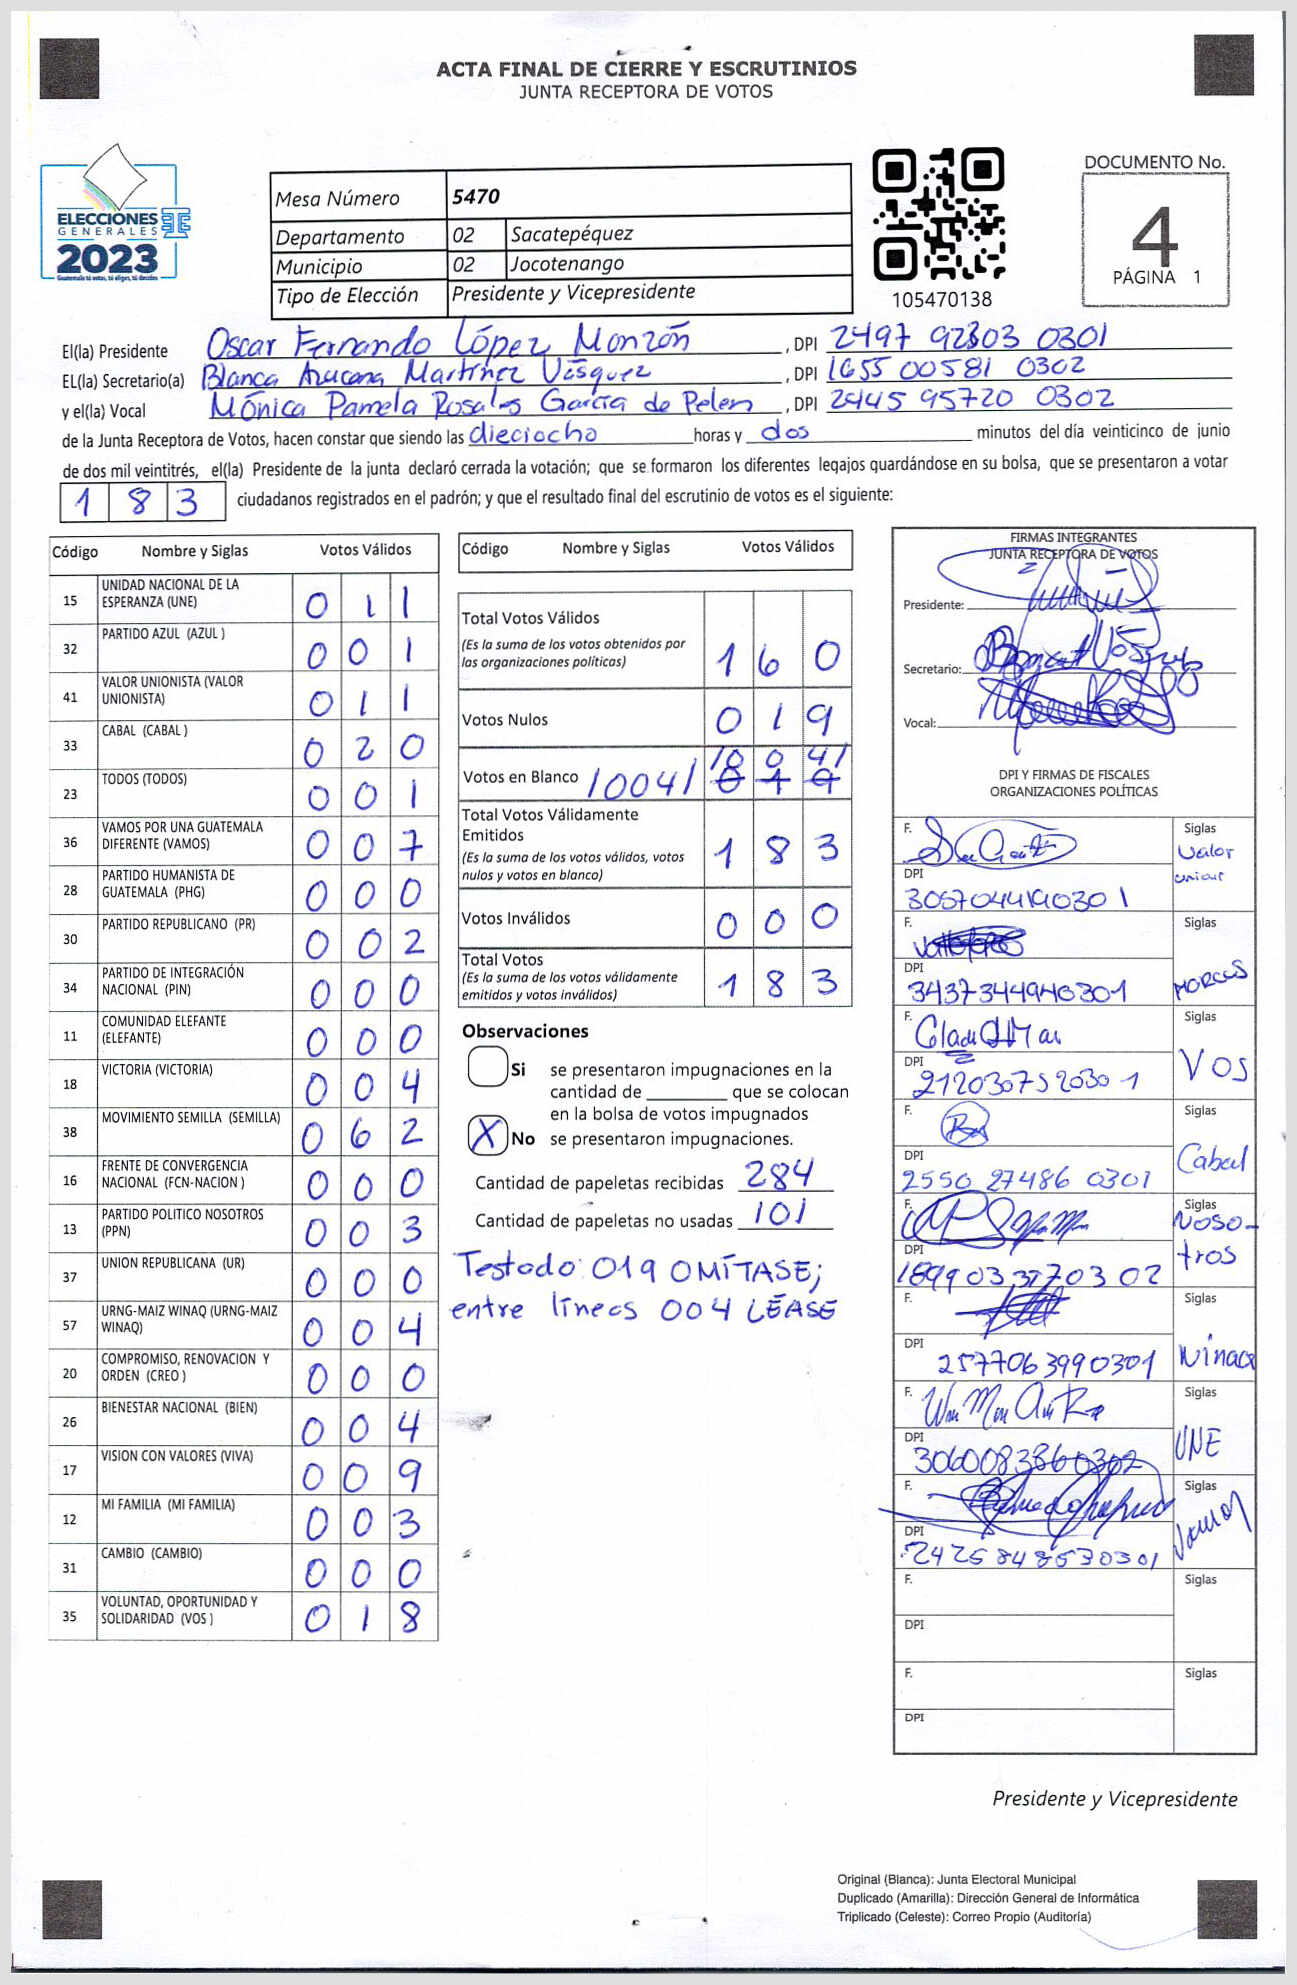 ACTA FINAL DE CIERRE Y ESCRUTINIOS
JUNTA RECEPTORA DE VOTOS
ELECCIONES
GENERALES
2023
Guatemala tú votas, tú eliges, tú decides
Mesa Número 5470
Departamento 02 Sacatepéquez
Municipio 02 Jocotenango
Tipo de Elección Presidente y Vicepresidente
105470138
DOCUMENTO No.
4
PÁGINA 1
El(la) Presidente Oscar Fernando López Monzón, DPI 2497 92803 0301
EL(la) Secretario(a) Blanca Azucena Martínez Vásquez, DPI 1655 00581 0302
y el(la) Vocal Mónica Pamela Rosales García de Pelen, DPI 2445 95720 0302
de la Junta Receptora de Votos, hacen constar que siendo las dieciocho horas y dos minutos del día veinticinco de junio
de dos mil veintitrés, el(la) Presidente de la junta declaró cerrada la votación; que se formaron los diferentes legajos guardándose en su bolsa, que se presentaron a votar
183 ciudadanos registrados en el padrón; y que el resultado final del escrutinio de votos es el siguiente:
Código Nombre y Siglas Votos Válidos
15 UNIDAD NACIONAL DE LA ESPERANZA (UNE) 011
32 PARTIDO AZUL (AZUL ) 001
41 VALOR UNIONISTA (VALOR UNIONISTA) 011
33 CABAL (CABAL ) 020
23 TODOS (TODOS) 001
36 VAMOS POR UNA GUATEMALA DIFERENTE (VAMOS) 007
28 PARTIDO HUMANISTA DE GUATEMALA (PHG) 000
30 PARTIDO REPUBLICANO (PR) 002
34 PARTIDO DE INTEGRACIÓN NACIONAL (PIN) 000
11 COMUNIDAD ELEFANTE (ELEFANTE) 000
18 VICTORIA (VICTORIA) 004
38 MOVIMIENTO SEMILLA (SEMILLA) 062
16 FRENTE DE CONVERGENCIA NACIONAL (FCN-NACION ) 000
13 PARTIDO POLITICO NOSOTROS (PPN) 003
37 UNION REPUBLICANA (UR) 000
57 URNG-MAIZ WINAQ (URNG-MAIZ WINAQ) 004
20 COMPROMISO, RENOVACION Y ORDEN (CREO ) 000
26 BIENESTAR NACIONAL (BIEN) 004
17 VISION CON VALORES (VIVA) 009
12 MI FAMILIA (MI FAMILIA) 003
31 CAMBIO (CAMBIO) 000
35 VOLUNTAD, OPORTUNIDAD Y SOLIDARIDAD (VOS ) 018
Código Nombre y Siglas Votos Válidos
Total Votos Válidos
(Es la suma de los votos obtenidos por
las organizaciones políticas) 160
Votos Nulos 019
Votos en Blanco /004/ /004/ 019
Total Votos Válidamente
Emitidos
(Es la suma de los votos válidos, votos
nulos y votos en blanco) 183
Votos Inválidos 000
Total Votos
(Es la suma de los votos válidamente
emitidos y votos inválidos) 183
Observaciones
Si se presentaron impugnaciones en la
cantidad de ________ que se colocan
en la bolsa de votos impugnados
X No se presentaron impugnaciones.
Cantidad de papeletas recibidas 284
Cantidad de papeletas no usadas 101
Testado: 019 OMÍTASE;
entre líneas 004 LÉASE
FIRMAS INTEGRANTES
JUNTA RECEPTORA DE VOTOS
Presidente:
Secretario:
Vocal:
DPI Y FIRMAS DE FISCALES
ORGANIZACIONES POLÍTICAS
F. Siglas Valor
DPI
F. Siglas
DPI 3437344940301
F. Siglas VOS
DPI 2120307520301
F. Siglas Cabal
DPI 2550 27486 0301
F. Siglas Noso-
tros
DPI 1899033770302
F. Siglas Winaq
DPI 2577063990301
F. Siglas UNE
DPI 3060083860302
F. Siglas Vamos
DPI 2425848530301
F. Siglas
DPI
F. Siglas
DPI
Presidente y Vicepresidente
Original (Blanca): Junta Electoral Municipal
Duplicado (Amarilla): Dirección General de Informática
Triplicado (Celeste): Correo Propio (Auditoría)